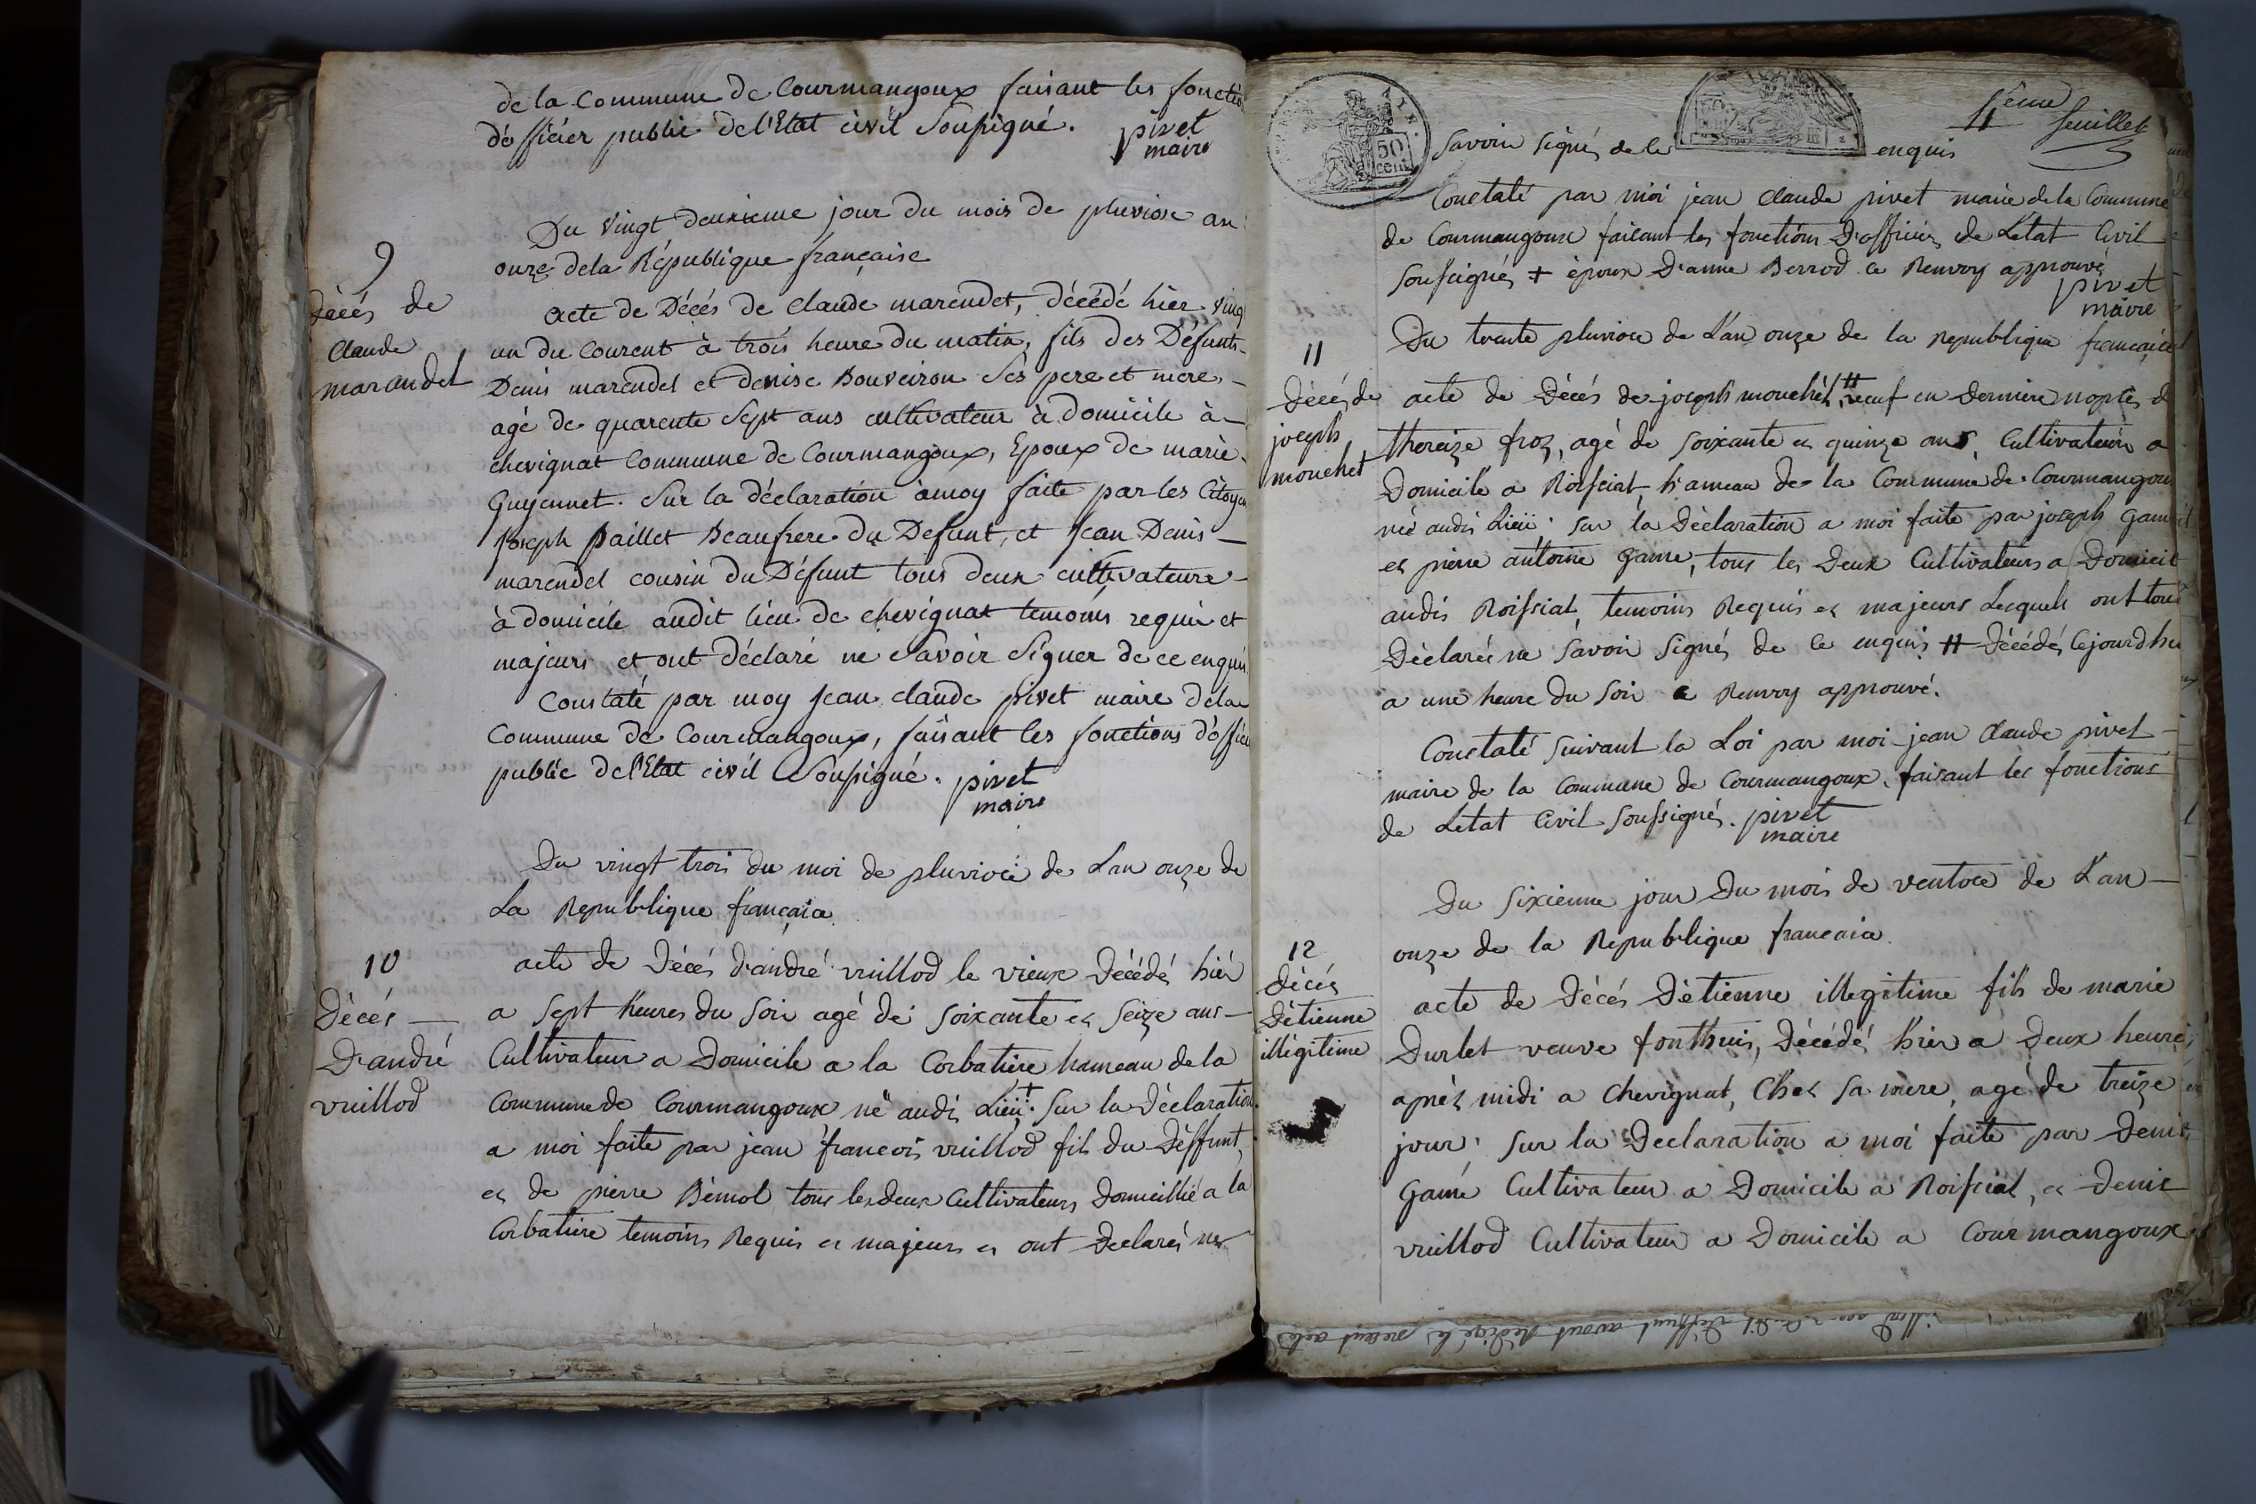 de la Commune de Courmangoux faisant les fonctio
d'officier public de l'Etat civil Sousigné.
pivet
maire
Du Vingt deuxieme jour du mois de pluviose an
onze de la République française
9
décés de
Claude
marandet
acte de Décés de Claude marendet, décédé hier Ving
un du Courent à trois heure du matin, fils des Défunts
Denis marendet et denise Bouveiron Ses pere et mere,
agé de quarente Sept ans cultivateur à domicile à
chevignat Commune de Courmangoux, Epoux de marie
Guyennet. Sur la déclaration à moy faite par les Citoyen
Joseph paillet Beaufrere du Defunt, et Jean Denis
marendet cousin du Défunt tous deux cultivateure
à domicile audit lieu de chevignat temoins requis et
majeurs et ont déclaré ne Savoir Signer de ce enquis
Constaté par moy Jean Claude pivet maire dela
Commune de Courmangoux, faisant les fonctions d'offici
public de l'Etat civil Sousigné. pivet
maire
Du vingt trois du moi de pluviose de Lan onze de
La Republique francaice
10
Décés
D'andré
vuillod
acte de Décés d'andré vuillod le vieux Décédé hiér
a sept heures du Soir agé de Soixante et Seize ans
Cultivateur a Domicile a la Corbatiere hameau de la
Commune de Courmangoux né audi Lieu + Sur la Déclaration
a moi faite par jean francois vuillod fils du Déffunt,
et de pierre Bémol tous les deux Cultivateurs Domicillié a la
Corbatiere temoins Requis et majeurs et ont Declarés ne
11 eme
feuillet
50
cent
Savoir Signés de ce enquis
Constaté par moi jean Claude pivet maire de la Commune
de Courmangoux faisant les fonctions D'officier de Letat Civil
Soussignés + époux D'anne Berrod ce Renvoy approuvé
pivet
maire
Du trente pluviose de L'an onze de la republique francaice
11
Décés de
joseph
mouchet
acte de Décés de joseph mouchet, # veuf en Derniere noptes d
thereize froz, agé de Soixante et quinze ans, Cultivateur a
Domicile a Roissiat, hameau de la Commune de Courmangou
né audis Lieu. Sur la Déclaration a moi faite par joseph Game
et pierre antoine Game, tous les Deux Cultivateurs a Domicil
audis Roissiat, temoins Requis et majeurs Lesquels ont tous
Déclarés ne Savoir Signés de ce enquis # Décédés cejourdhu
a une heure du Soir ce Renvoy approuvé.
Constaté Suivant la Loi par moi jean Claude pivet
maire de la Commune de Courmangoux, faisant les fonctions
de Letat Civil Soussignés. pivet
maire
Du Sixienne jour Du mois de ventose de L'an
onze de la Republique francaice
12
Décés
Détienne
illégitime
acte de Décés Détienne illegitime fils de marie
Durlet veuve fonthuis, Décédé hier a Deux heures
aprés midi a Chevignat, Chés Sa mere, agé de treize
jour. Sur la Declaration a moi faite par Denis
Game Cultivateur a Domicile a Roissiat, et Denis
vuillod Cultivateur a Domicile a Courmangoux